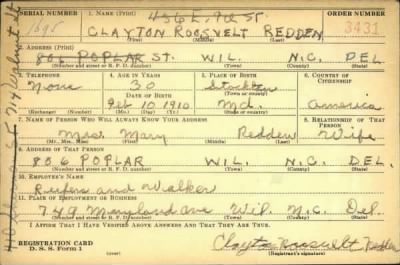 436 E. 9th St.
SERIAL NUMBER 1. NAME (Print) ORDER NUMBER
1695 CLAYTON ROOSVELT REDDEN 3431
(First) (Middle) (Last)
2. ADDRESS (Print)
806 POPLAR ST. WIL. N.C. DEL
(Number and street or R. F. D. number) (Town) (County) (State)
3. TELEPHONE 4. AGE IN YEARS 5. PLACE OF BIRTH 6. COUNTRY OF CITIZENSHIP
None 30 Stockton
DATE OF BIRTH (Town or county)
Feb 10 1910 Md. America
(Exchange) (Number) (Mo.) (Day) (Yr.) (State or country)
7. NAME OF PERSON WHO WILL ALWAYS KNOW YOUR ADDRESS 8. RELATIONSHIP OF THAT PERSON
Mrs. Mary Redden Wife
(Mr., Mrs., Miss) (First) (Middle) (Last)
9. ADDRESS OF THAT PERSON
806 POPLAR WIL. N.C. DEL.
(Number and street or R. F. D. number) (Town) (County) (State)
10. EMPLOYER'S NAME
and Walker
11. PLACE OF EMPLOYMENT OR BUSINESS
749 Maryland Ave Wil. N.C. Del.
(Number and street or R. F. D. number) (Town) (County) (State)
I AFFIRM THAT I HAVE VERIFIED ABOVE ANSWERS AND THAT THEY ARE TRUE.
REGISTRATION CARD
D. S. S. Form 1 Clayton Roosvelt Redden
(Registrant's signature)